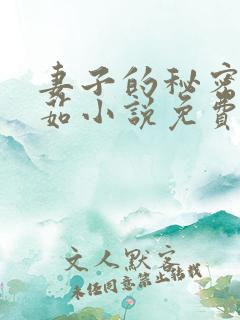 妻子的秘密
茹小说免费
文人默客
未经同意禁止转载